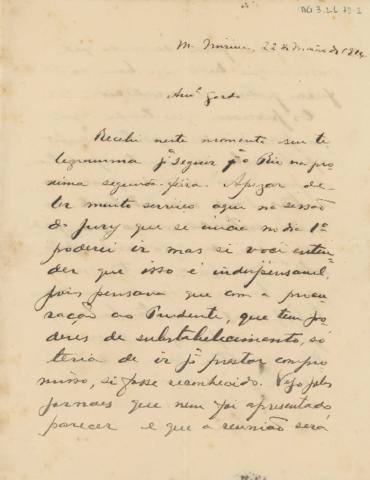 AG 3.1.6
M. Mirim, 22 de Maio de 18
Am.º Gordo
Recebi neste momento seu te
legramma pª seguir pª o Rio na pro
xima segunda-feira. Apezar de
ter muito serviço aqui na sessão
do Jury que se inicia no dia 1º
poderei ir mas si você enten
der que isso é indispensavel,
pois pensava que com a procu
ração ao Prudente, que tem po
deres de substabelecimento, só
teria de ir pª prestar compro
misso, si fosse reconhecido. Vejo pelos
jornaes que nem foi apresentado
parecer e que a reunião será